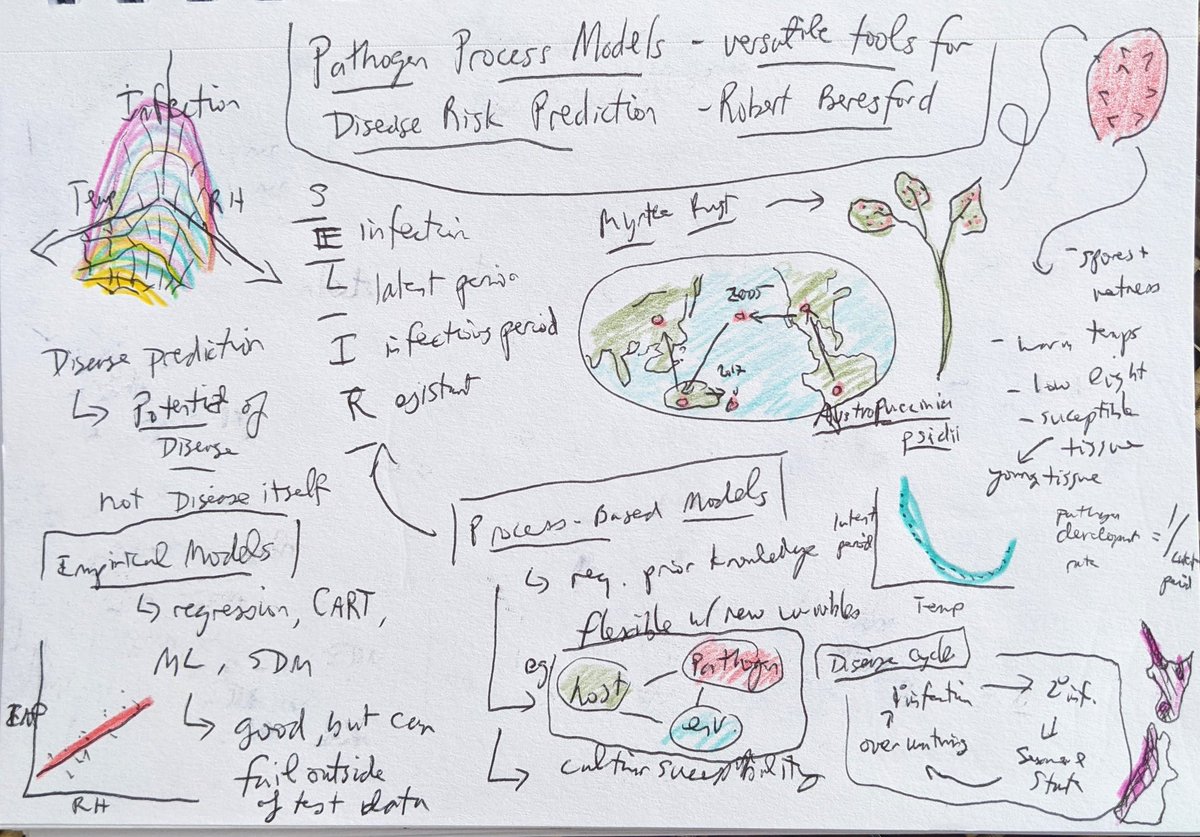 Pathogen Process Models - versatile tools for
Disease Risk Prediction - Robert Beresford
Infection
Temp
RH
S
E infection
L latent period
I infectious period
R esistant
Disease prediction
↳ Potential of
Disease
not Disease itself
Empirical Models
↳ regression, CART,
ML, SDM
↳ good, but can
fail outside
of test data
INF
RH
Myrtle Rust →
2005
2017
Austropuccinia
psidii
- spores +
wetness
- warm temps
- low light
- suceptible
tissue
young tissue
latent
period
Temp
pathogen
development
rate
= 1/
latent
period
Process-Based Models
↳ req. prior knowledge
flexible w/ new variables
eg
host
Pathogen
env.
cultivar suceptibility
Disease Cycle
1° infection → 2° inf.
overwintring
State